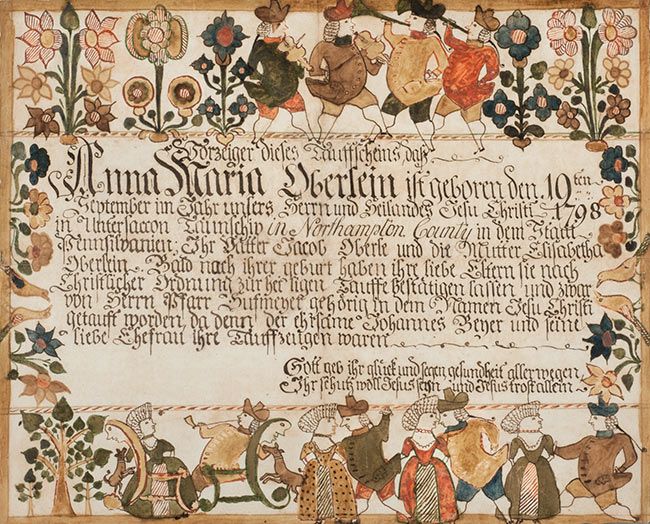 Vorzeiger dieses Tauffscheins, daß
Anna Maria Oberlein ist geboren den 19ten
September im Jahr unsers Herrn und Heilandes Jesu Christi 1798
in Untersaccon Taunschip in Northampton County in dem Staatt
Pennsilvanien: Ihr Vatter Jacob Oberle und die Mutter Elisabetha
Oberlein. Bald nach ihrer geburt haben ihre liebe Eltern sie nach
Christlicher Ordnung zur heiligen Tauffe bestätigen lassen, und zwar
von Herrn Pfarr gehörig in dem Namen Jesu Christi
getaufft worden, da denn der ehrsame Johannes Beyer und seine
liebe Ehefrau ihre Tauffzeugen waren
Gott geb ihr glück und segen gesundheit aller wegen
Ihr schutz woll Jesus seyn und Jesus trost allein